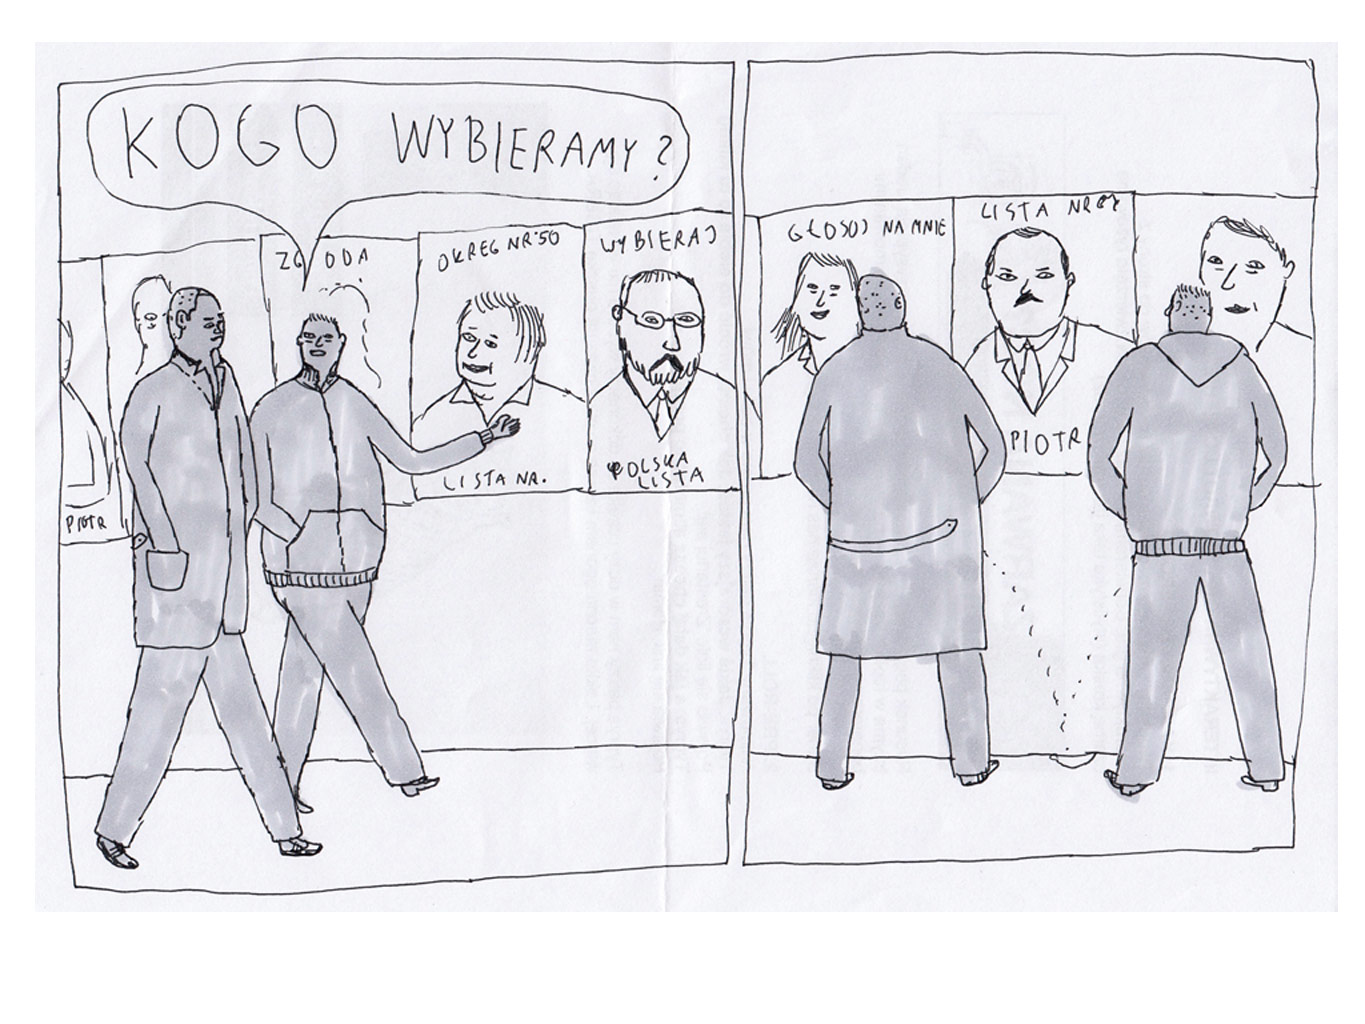 KOGO WYBIERAMY?
PIOTR
ZGODA
OKRĘG NR 50
LISTA NR.
WYBIERAJ
POLSKA
LISTA
GŁOSUJ NA MNIE
LISTA NR
PIOTR